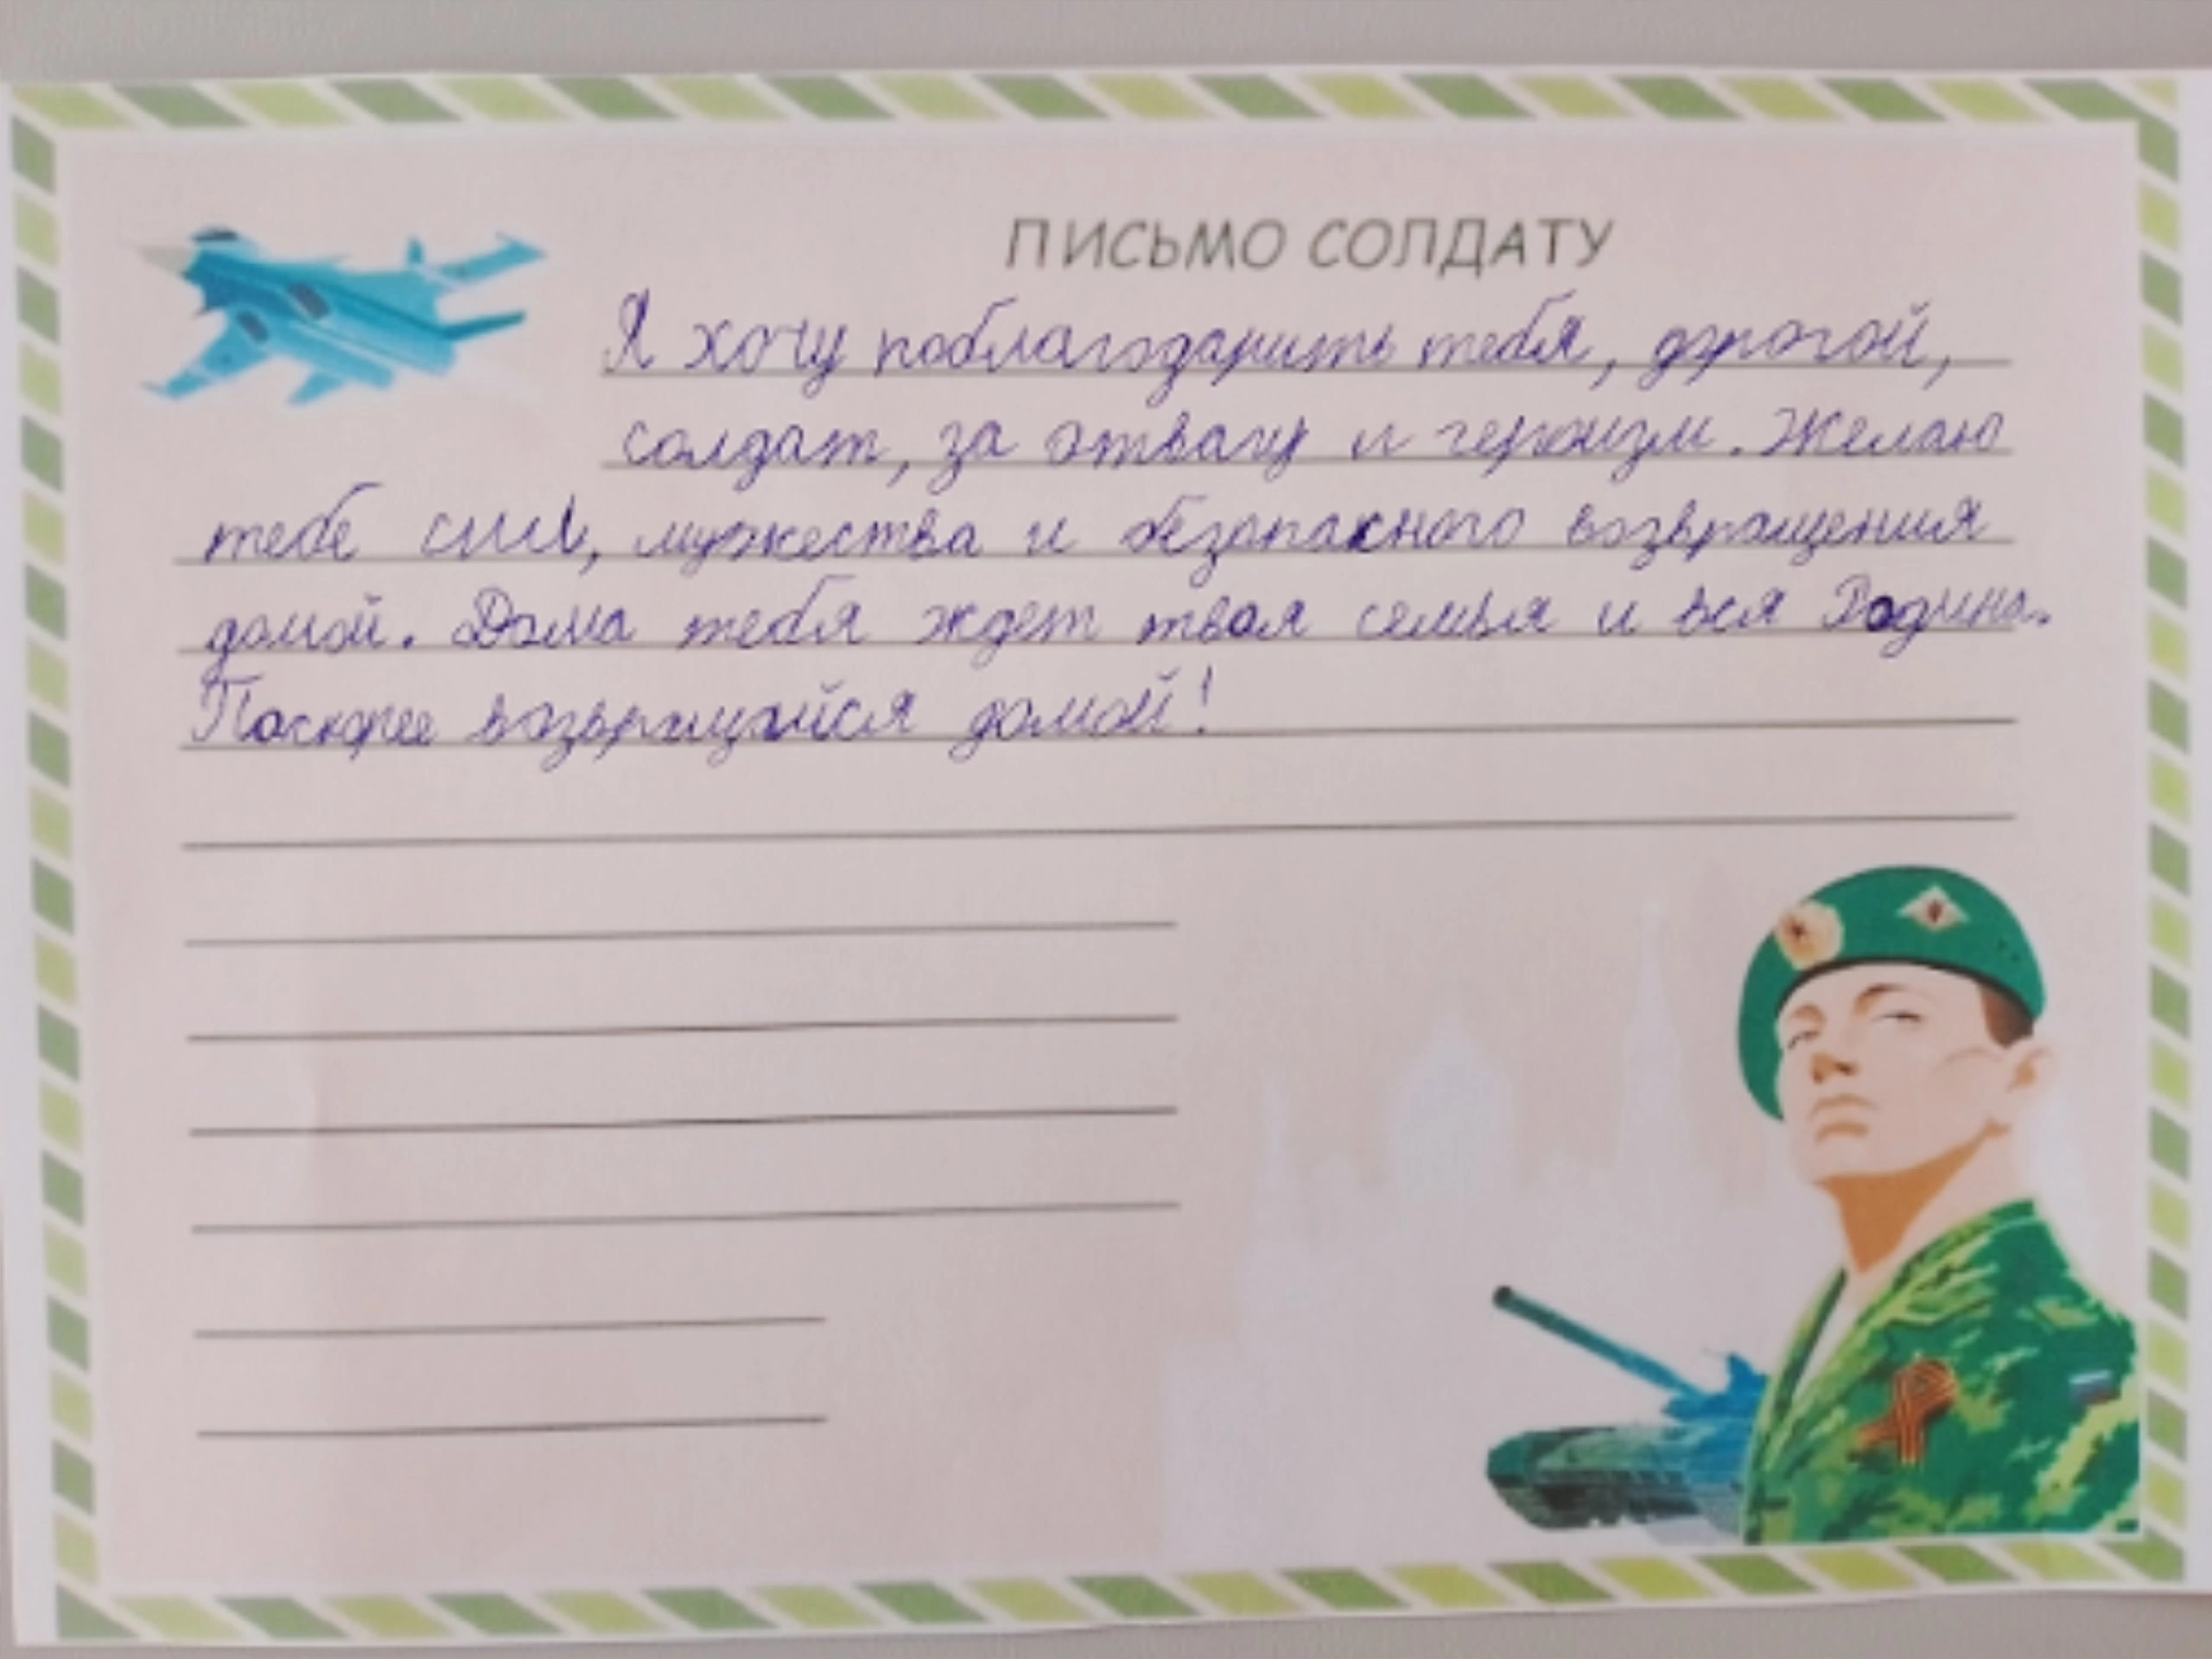 ПИСЬМО СОЛДАТУ
Я хочу поблагодарить тебя, дорогой,
солдат, за отвагу и героизм. Желаю
тебе сил, мужества и безопакного возвращения
домой. Дома тебя ждет твоя семья и вся Родина.
Поскорее возвращайся домой!